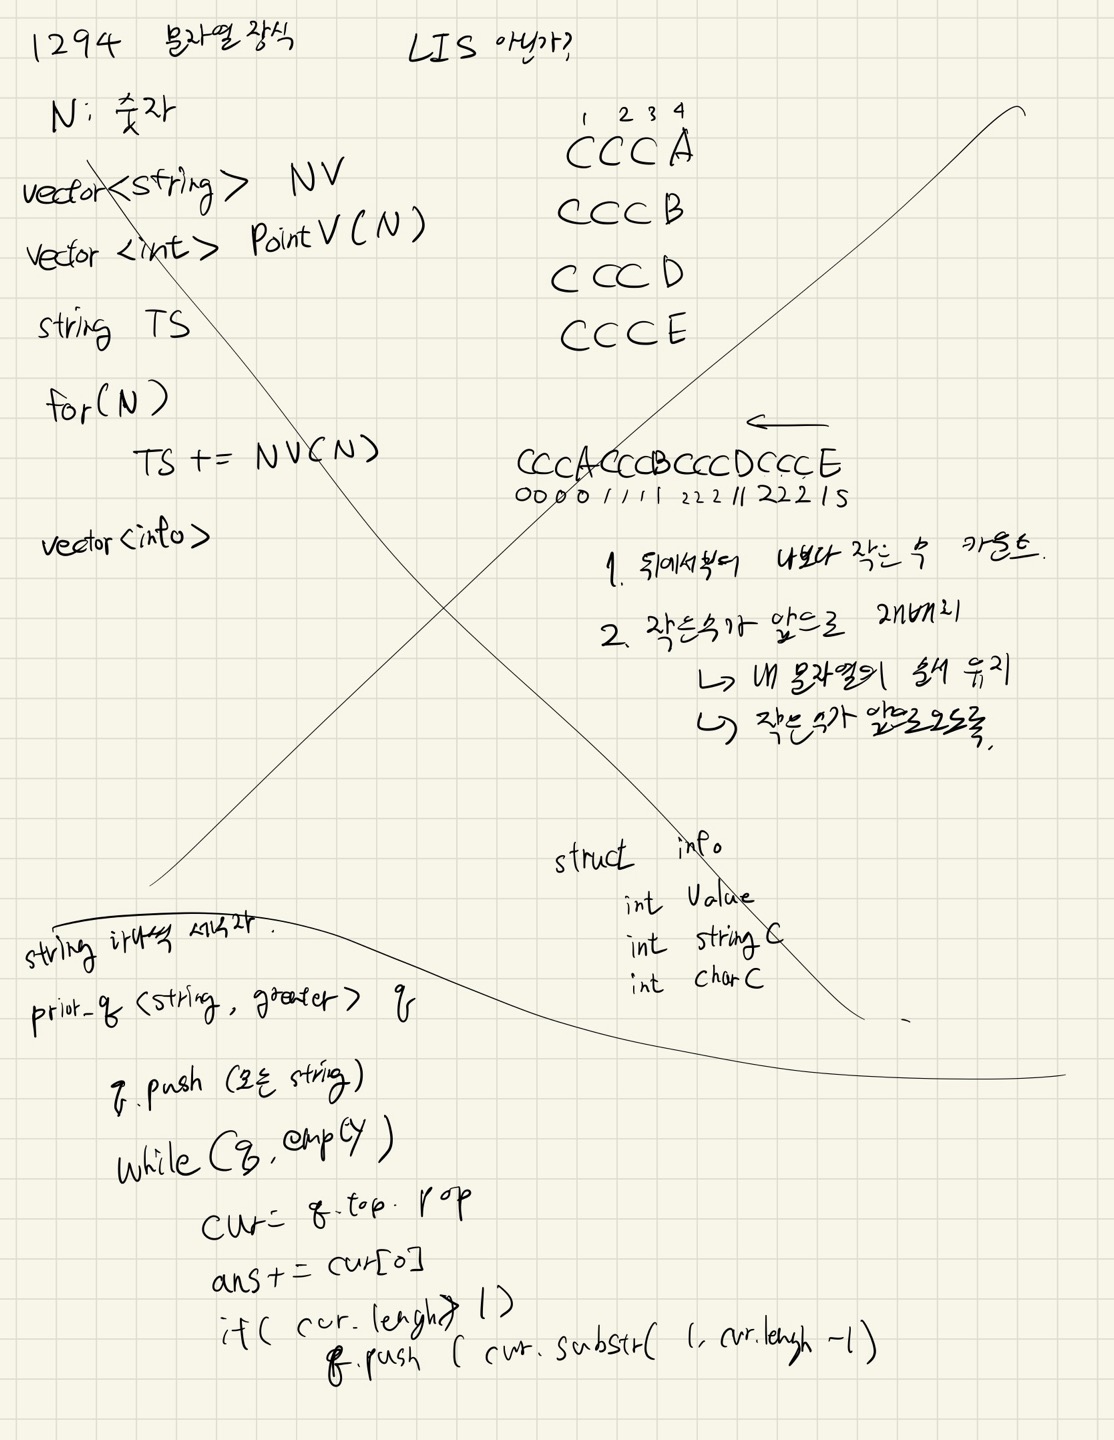 1294 문자열 장식
LIS 아닌가?
N: 숫자
vector<string> NV
vector <int> PointV(N)
string TS
for(N)
TS += NV(N)
vector<info>
1 2 3 4
CCCA
CCCB
CCCD
CCCE
CCCACCCBCCCDCCCE
0000 1111 222 11 222 15
1. 뒤에서부터 나보다 작은 수 카운트.
2. 작은수가 앞으로 재배치
↳ 내 문자열의 순서 유지
↳ 작은수가 앞으로오도록.
struct info
int Value
int stringC
int charC
string 하나씩 세우자.
prior_q <string, greater> q
q.push (모든 string)
while (q.empty)
cur= q.top. pop
ans+= cur[0]
if( cur.lengh > 1)
q.push ( cur.substr( 1, cur.lengh -1)